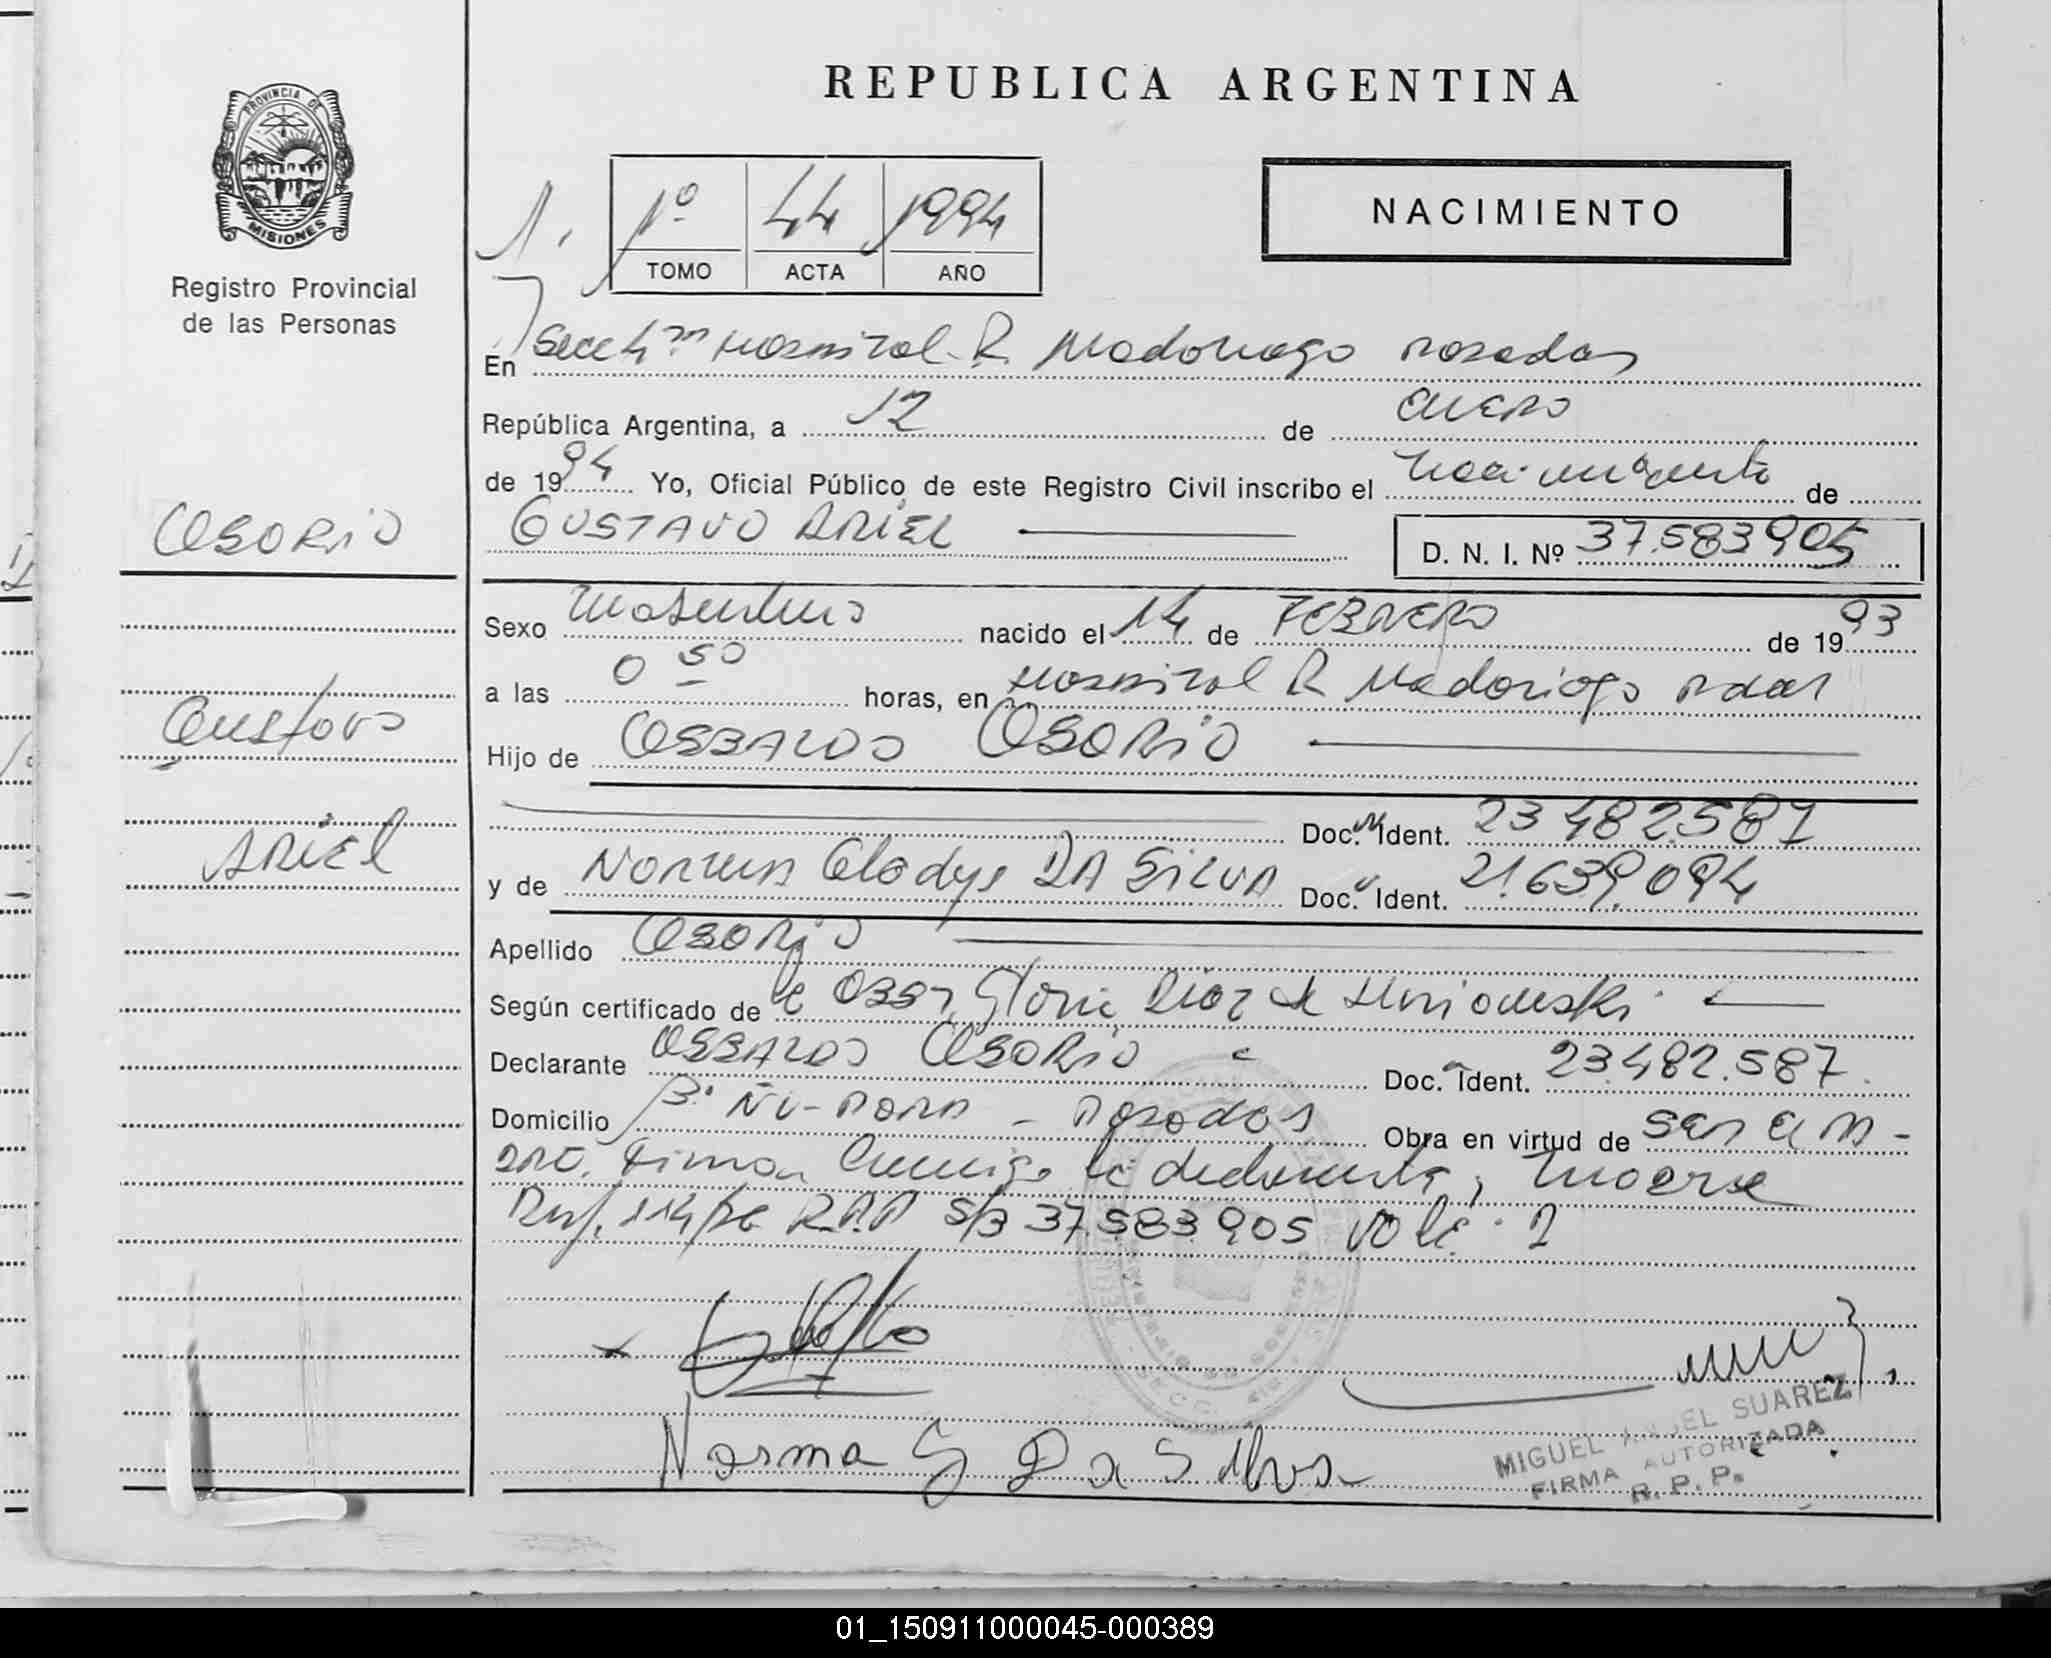 REPUBLICA ARGENTINA
PROVINCIA DE
MISIONES
Registro Provincial
de las Personas
1.
1º 44 1994
TOMO ACTA AÑO
NACIMIENTO
En Secc 4ta Hospital R. Madariaga Posadas
República Argentina, a 12 de enero
de 1994 Yo, Oficial Público de este Registro Civil inscribo el nacimiento de
GUSTAVO ARIEL D. N. I. Nº 37.583.905
OSORIO
Sexo masculino nacido el 14 de FEBRERO de 1993
a las 0 50 horas, en Hospital R Madariaga Pdas
Gustavo
Hijo de OSBALDO OSORIO
Doc. Ident. 23 482.587
ARIEL
y de Norma Gladys DA SILVA Doc. Ident. 21.639.094
Apellido OSORIO
Según certificado de la Obst. Gloria Diaz de
Declarante OSBALDO OSORIO Doc. Ident. 23.482.587.
Domicilio Bº ÑU-PORA - Posadas Obra en virtud de ser el pa-
dre. Firma conmigo la declarante, madre
114/86 R.P.P s/3 37.583.905 Vale. 2
Norma G Da Silva
MIGUEL ANGEL SUAREZ
FIRMA AUTORIZADA
R. P. P.
01_150911000045-000389